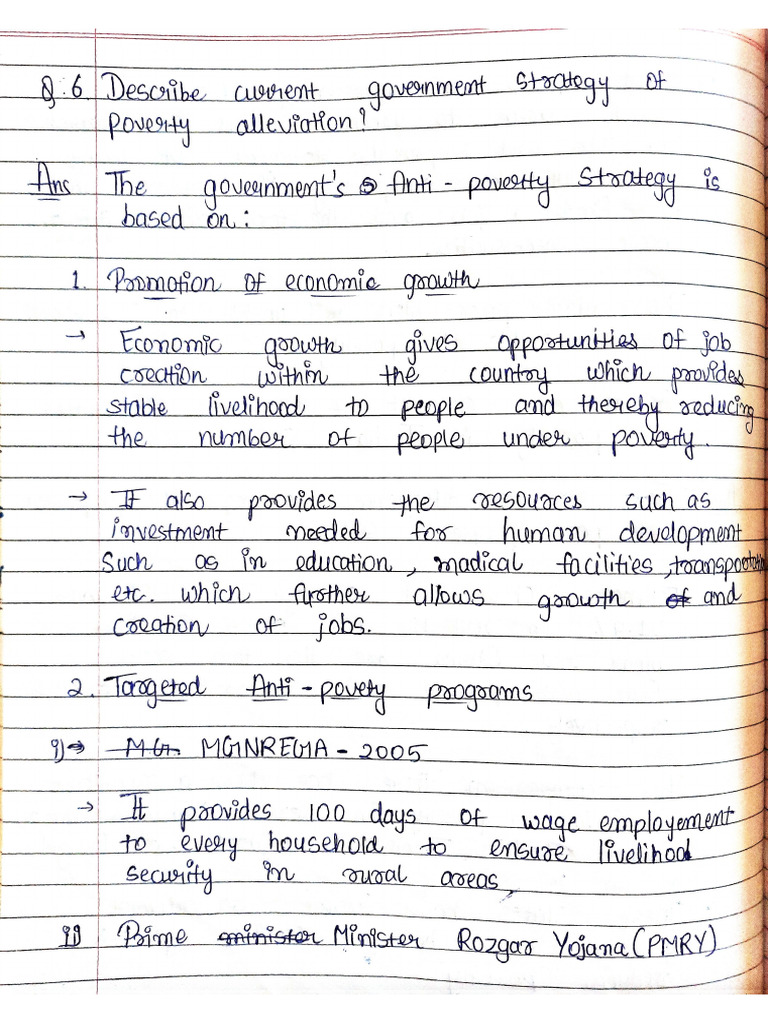 Q.6 Describe current government strategy of
poverty alleviation?
Ans The government's Anti-poverty Strategy is
based on:
1. Promotion of economic growth
→ Economic growth gives opportunities of job
creation within the country which provides
stable livelihood to people and thereby reducing
the number of people under poverty.
→ It also provides the resources such as
investment needed for human development
Such as in education, madical facilities, transportation
etc. which further allows growth of and
creation of jobs.
2. Targeted Anti-povety programs
i)→ MG. MGNREGA - 2005
→ It provides 100 days of wage employement
to every household to ensure livelihod
security in rural areas,
ii) Prime minister Minister Rozgar Yojana (PMRY)